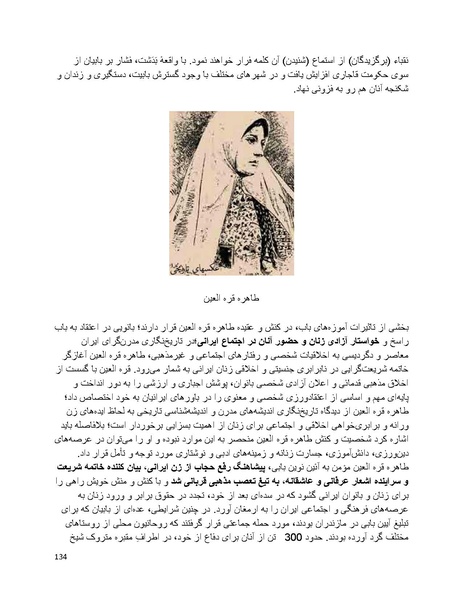 نقباء (برگزیدگان) از استماع (شنیدن) آن کلمه فرار خواهند نمود. با واقعهٔ بَدَشت، فشار بر بابیان از
سوی حکومت قاجاری افزایش یافت و در شهرهای مختلف با وجود گسترش بابیت، دستگیری و زندان و
شکنجه آنان هم رو به فزونی نهاد.
عکسهای تاریخی
طاهره قره العین
بخشی از تاثیرات آموزه‌های باب، در کنش و عقیده طاهره قره العین قرار دارند؛ بانویی در اعتقاد به باب
راسخ و خواستار آزادی زنان و حضور آنان در اجتماع ایرانی؛در تاریخ‌نگاری مدرن‌گرای ایران
معاصر و دگردیسی به اخلاقیات شخصی و رفتارهای اجتماعی و غیرمذهبی، طاهره قره العین آغازگر
خاتمه شریعت‌گرایی در نابرابری جنسیتی و اخلاقی زنان ایرانی به شمار می‌رود. قره العین با گسست از
اخلاق مذهبی قدمائی و اعلان آزادی شخصی بانوان، پوشش اجباری و ارزشی را به دور انداخت و
پایه‌ای مهم و اساسی از اعتقادورزی شخصی و معنوی را در باورهای ایرانیان به خود اختصاص داد؛
طاهره قره العین از دیدگاه تاریخ‌نگاری اندیشه‌های مدرن و اندیشه‌شناسی تاریخی به لحاظ ایده‌های زن
ورانه و برابری‌خواهی اخلاقی و اجتماعی برای زنان از اهمیت بسزایی برخوردار است؛ بلافاصله باید
اشاره کرد شخصیت و کنش طاهره قره العین منحصر به این موارد نبوده و او را می‌توان در عرصه‌های
دین‌ورزی، دانش‌آموزی، جسارت زنانه و زمینه‌های ادبی و نوشتاری مورد توجه و تأمل قرار داد.
طاهره قره العین مؤمن به آئین نوین بابی، پیشاهنگ رفع حجاب از زن ایرانی، بیان کننده خاتمه شریعت
و سراینده اشعار عرفانی و عاشقانه، به تیغ تعصب مذهبی قربانی شد و با کنش و منش خویش راهی را
برای زنان و بانوان ایرانی گشود که در سده‌ای بعد از خود، تجدد در حقوق برابر و ورود زنان به
عرصه‌های فرهنگی و اجتماعی ایران را به ارمغان آورد. در چنین شرایطی، عده‌ای از بابیان که برای
تبلیغ آیین بابی در مازندران بودند، مورد حمله جماعتی قرار گرفتند که روحانیون محلی از روستاهای
مختلف گرد آورده بودند. حدود 300 تن از آنان برای دفاع از خود، در اطراف مقبره متروک شیخ
134